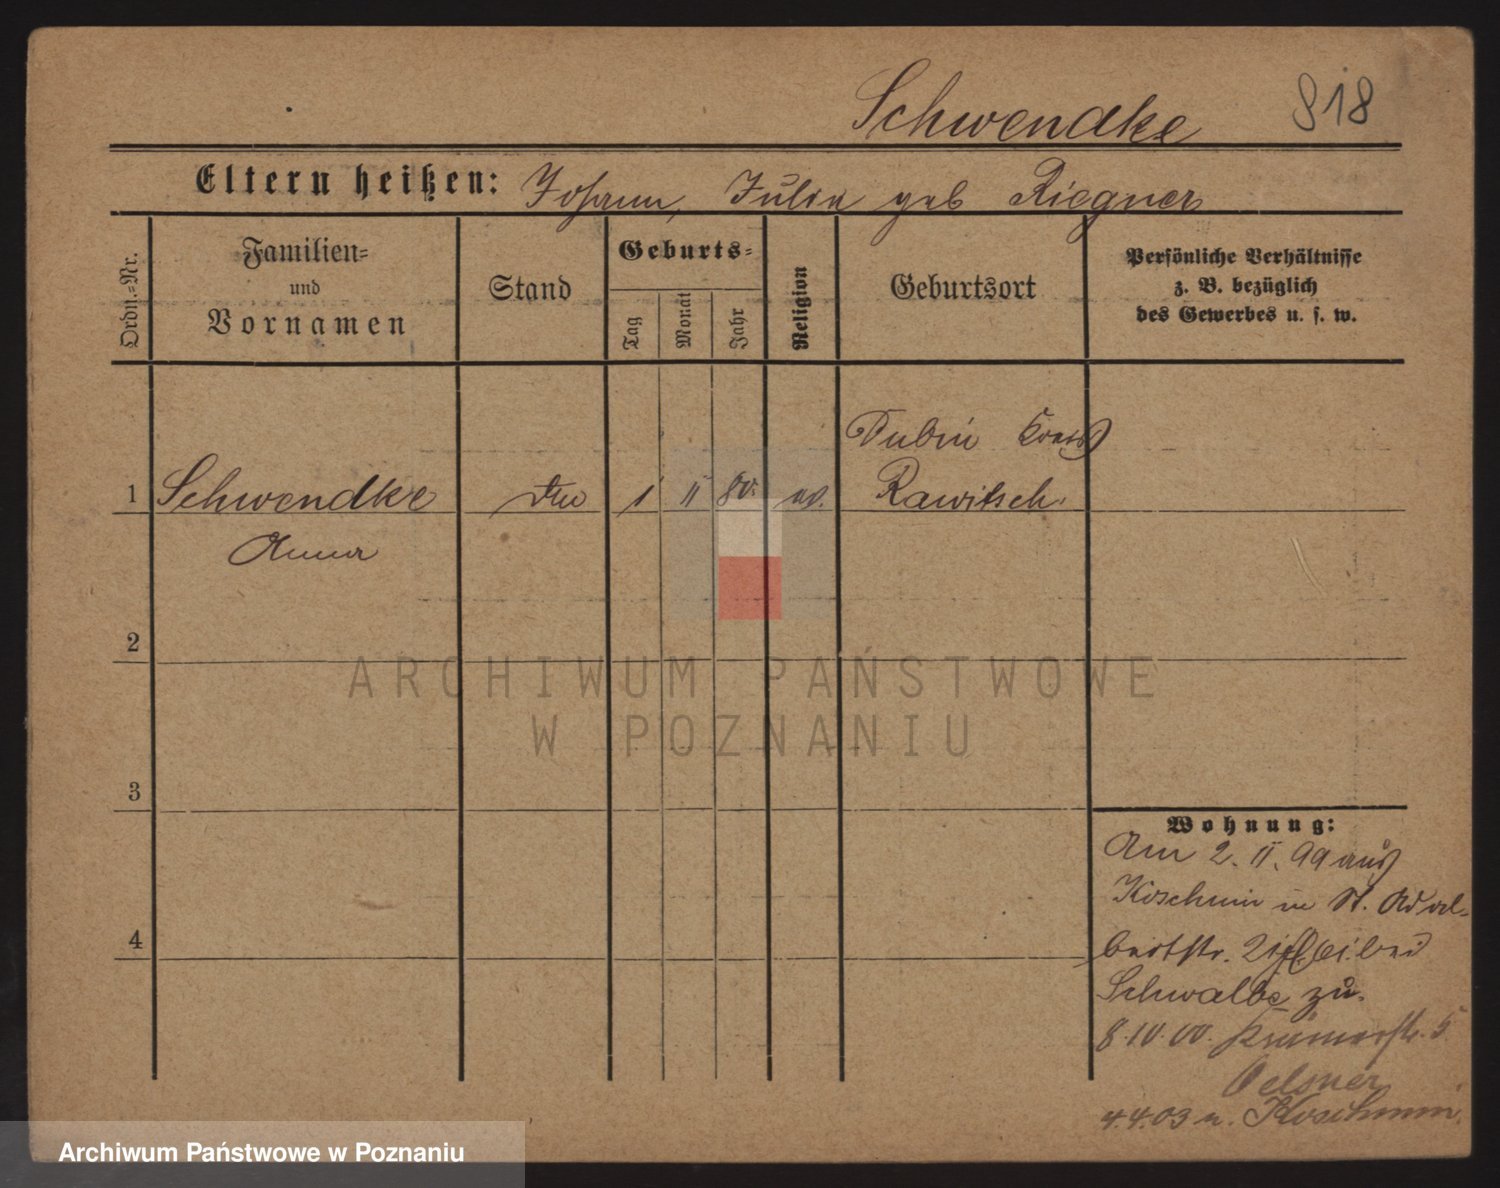 Schwendke 818
Eltern heißen: Johann, Julia geb Riegner
Ordn.-Nr.
Familien-
und
Vornamen
Stand
Geburts-
Tag
Monat
Jahr
Religion
Geburtsort
Persönliche Verhältnisse
z. B. bezüglich
des Gewerbes u. ſ. w.
Dubin Kreis
1 Schwendke 1 II 80. ev. Rawitsch.
Anna
2
ARCHIWUM PAŃSTWOWE
W POZNANIU
3
Wohnung:
Am 2. II. 99 aus
Koschmin in St. Adal-
bertstr. bei
Schwalbe zu.
8.10.00. Krämerstr. 5
Oelsner
4.4.03 n. Koschmin.
4
Archiwum Państwowe w Poznaniu